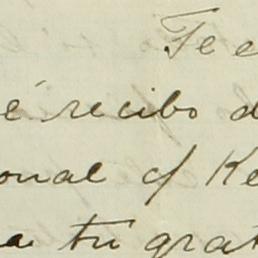 Te e
é recibo d
onal c/ Ke
a tu grat